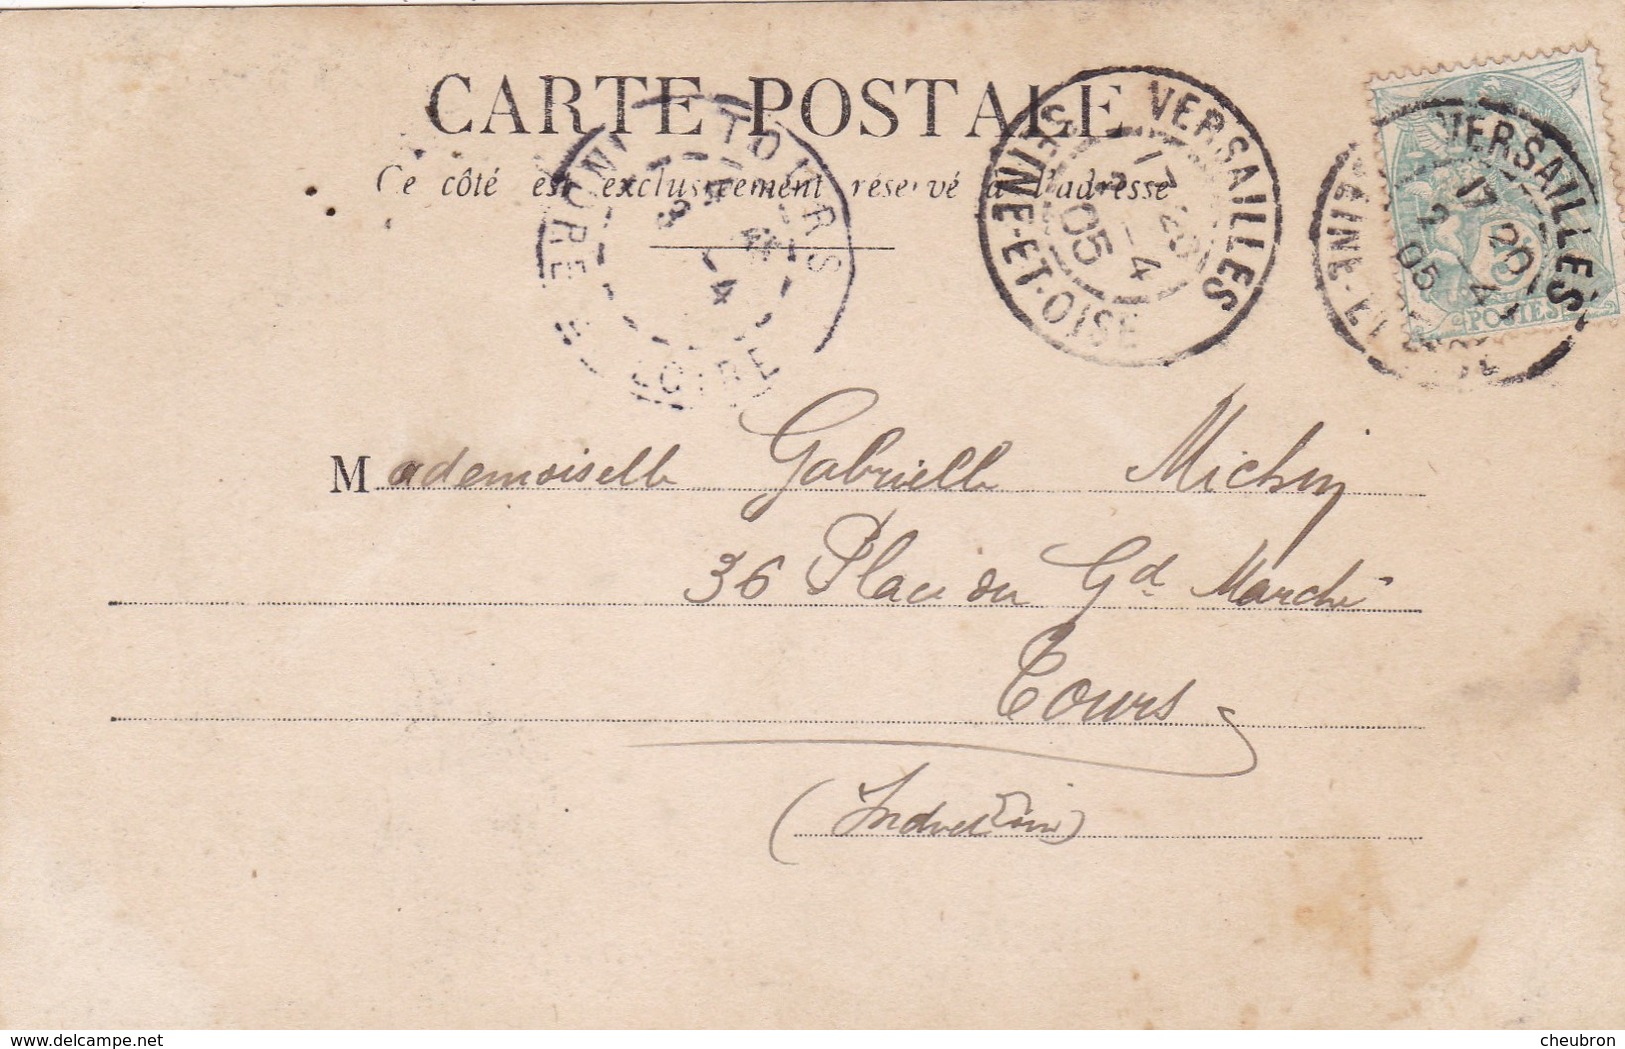 CARTE POSTALE
Ce côté est exclusivement réservé à l'adresse
TOURS
INDRE ET LOIRE
VERSAILLES
17 20
2 - 4
05
SEINE-ET-OISE
VERSAILLES
17 20
2 4
05
POSTES
Mademoiselle Gabrielle Michin
36 Place du Gd Marché
Tours
(Indre et Loire)
delcampe.net
cheubron